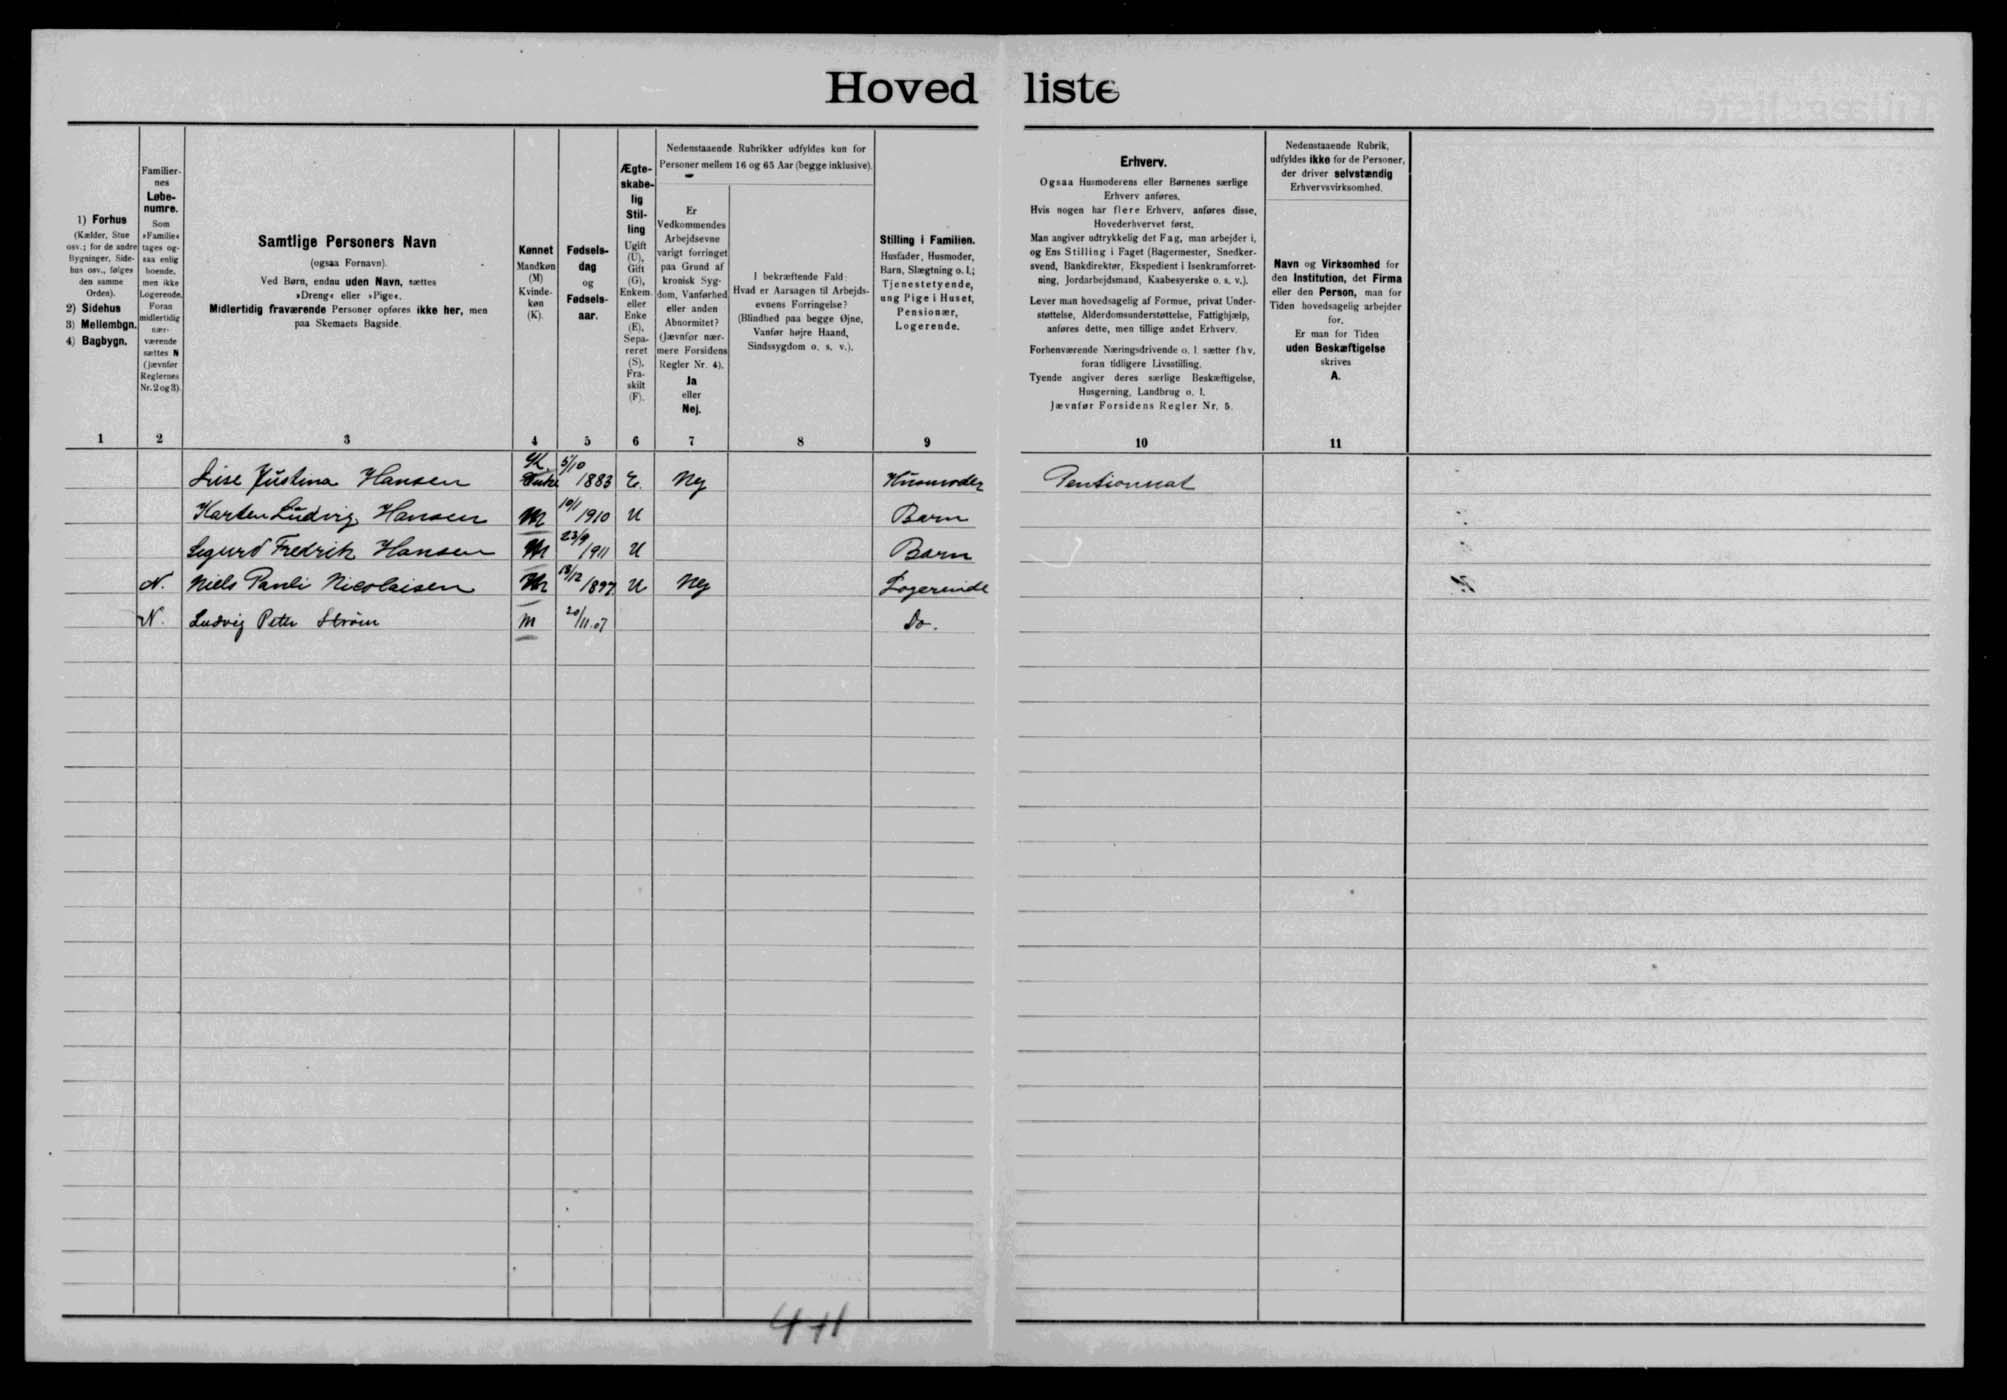 Hoved liste
1) Forhus
(Kælder, Stue
osv.; for de andre
Bygninger, Side-
hus osv., følges
den samme
Orden).
2) Sidehus
3) Mellembgn.
4) Bagbygn.
Familier-
nes
Løbe-
numre.
Som
»Familie«
tages og-
saa enlig
boende,
men ikke
Logerende.
Foran
midlertidig
nær-
værende
sættes N
(jævnfør
Reglernes
Nr. 2 og 3).
Samtlige Personers Navn
(ogsaa Fornavn).
Ved Børn, endnu uden Navn, sættes
»Dreng« eller »Pige«.
Midlertidig fraværende Personer opføres ikke her, men
paa Skemaets Bagside.
Kønnet
Mandkøn
(M)
Kvinde-
køn
(K).
Fødsels-
dag
og
Fødsels-
aar.
Ægte-
skabe-
lig
Stil-
ling
Ugift
(U),
Gift
(G),
Enkem.
eller
Enke
(E),
Sepa-
reret
(S),
Fra-
skilt
(F).
Nedenstaaende Rubrikker udfyldes kun for
Personer mellem 16 og 65 Aar (begge inklusive).
Er
Vedkommendes
Arbejdsevne
varigt forringet
paa Grund af
kronisk Syg-
dom, Vanførhed
eller anden
Abnormitet?
(Jævnfør nær-
mere Forsidens
Regler Nr. 4).
Ja
eller
Nej.
I bekræftende Fald:
Hvad er Aarsagen til Arbejds-
evnens Forringelse?
(Blindhed paa begge Øjne,
Vanfør højre Haand,
Sindssygdom o. s. v.).
Stilling i Familien.
Husfader, Husmoder,
Barn, Slægtning o. l.;
Tjenestetyende,
ung Pige i Huset,
Pensionær,
Logerende.
Erhverv.
Ogsaa Husmoderens eller Børnenes særlige
Erhverv anføres.
Hvis nogen har flere Erhverv, anføres disse,
Hovederhvervet først.
Man angiver udtrykkelig det Fag, man arbejder i,
og Ens Stilling i Faget (Bagermester, Snedker-
svend, Bankdirektør, Ekspedient i Isenkramforret-
ning, Jordarbejdsmand, Kaabesyerske o. s. v.).
Lever man hovedsagelig af Formue, privat Under-
støttelse, Alderdomsunderstøttelse, Fattighjælp,
anføres dette, men tillige andet Erhverv.
Forhenværende Næringsdrivende o. l. sætter fhv.
foran tidligere Livsstilling.
Tyende angiver deres særlige Beskæftigelse,
Husgerning, Landbrug o. l.
Jævnfør Forsidens Regler Nr. 5.
Nedenstaaende Rubrik,
udfyldes ikke for de Personer,
der driver selvstændig
Erhvervsvirksomhed.
Navn og Virksomhed for
den Institution, det Firma
eller den Person, man for
Tiden hovedsagelig arbejder
for.
Er man for Tiden
uden Beskæftigelse
skrives
A.
1 2 3 4 5 6 7 8 9 10 11
Lise Justina Hansen K. 5/10 1883 E. Nej Husmoder Pentionnat
Karsten Ludvig Hansen M 10/1 1910 U Barn
Sigurd Fredrik Hansen M 23/9 1911 U Barn
N. Niels Pauli Nicolaisen M 13/12 1897 U Nej Logerende
N. Ludvig Peter Strøm M 20/11.07 Do.
4+1